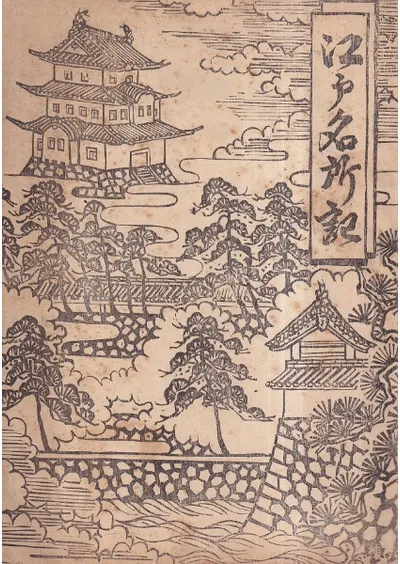 江戸名所記